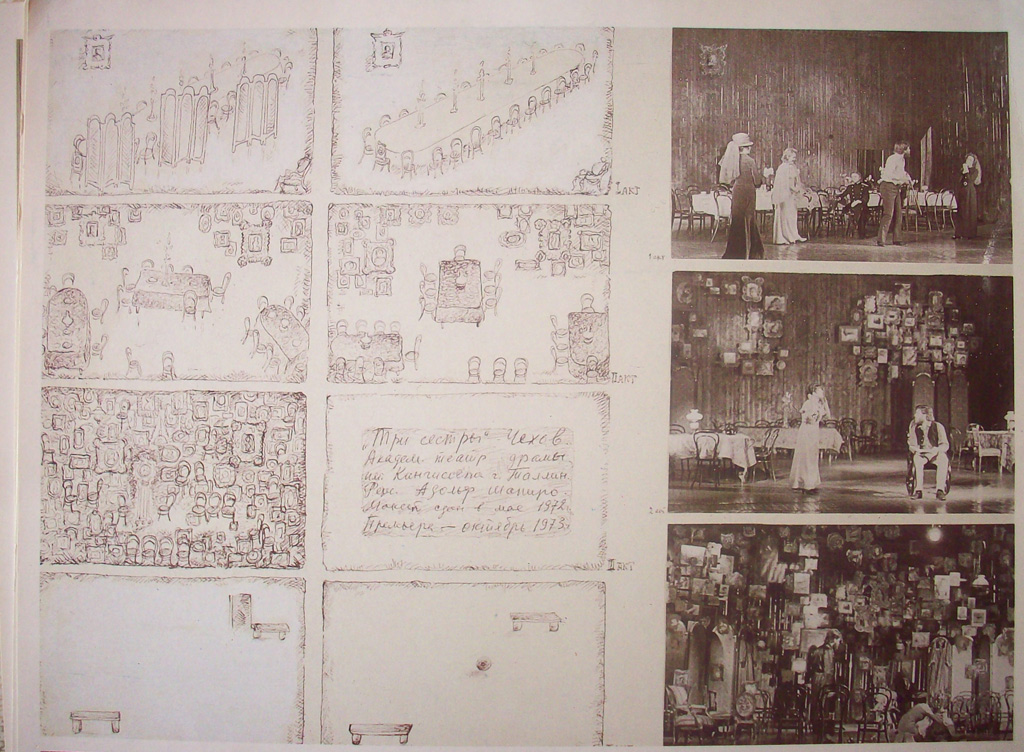 I АКТ
II АКТ
„Три сестры" Чехов.
Академ. театр драмы
им. Кингисеппа г. Таллин
Реж. Адольф Шапиро.
Макет сдан в мае 1972г.
Премьера — октябрь 1973г.
III АКТ
1 акт
2 акт